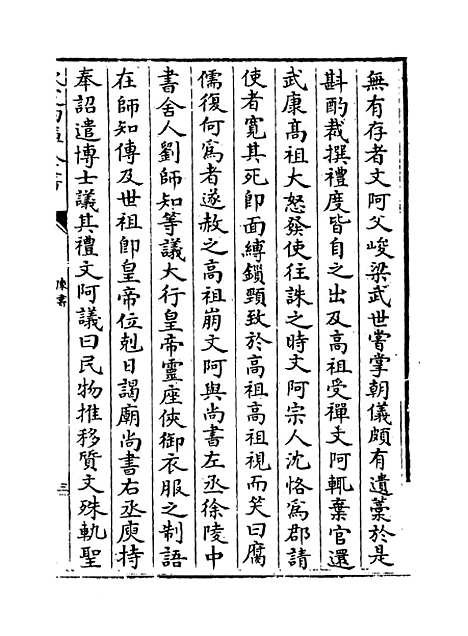 無有存者文阿父峻梁武世嘗掌朝儀頗有遺藁於是
斟酌裁撰禮度皆自之出及高祖受禪文阿輒棄官還
武康高祖大怒發使往誅之時文阿宗人沈恪為郡請
使者寛其死即面縛鎖頸致於高祖高祖視而笑曰腐
儒復何為者遂赦之高祖崩文阿與尚書左丞徐陵中
書舍人劉師知等議大行皇帝靈座俠御衣服之制語
在師知傳及世祖即皇帝位剋日謁廟尚書右丞庾持
奉詔遣博士議其禮文阿議曰民物推移質文殊軌聖
陳書
三